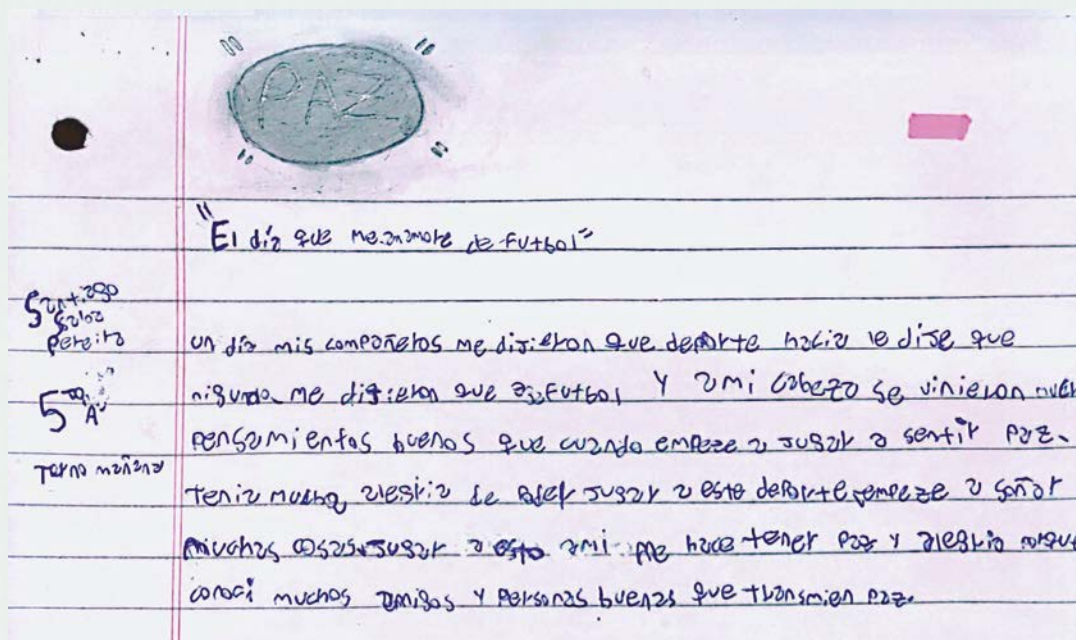 PAZ
"El día que me.enamore de FUtbol"
Santiago
Saba
Pereira
5to A
Torno mañana
un día mis compañeros me dijieron que deporte hacia le dije que
nigundo me digieron que Futbol Y ami cabeza se vinieron
pensamientos buenos que cuando empeze a jugar a sentir paz.
tenia mucha alegria de poder jugar a este deporte, empeze a soñar
muchas cosas. jugar a esto ami me hace tener paz y alegria
conocí muchos amigos y personas buenas que transmien paz.